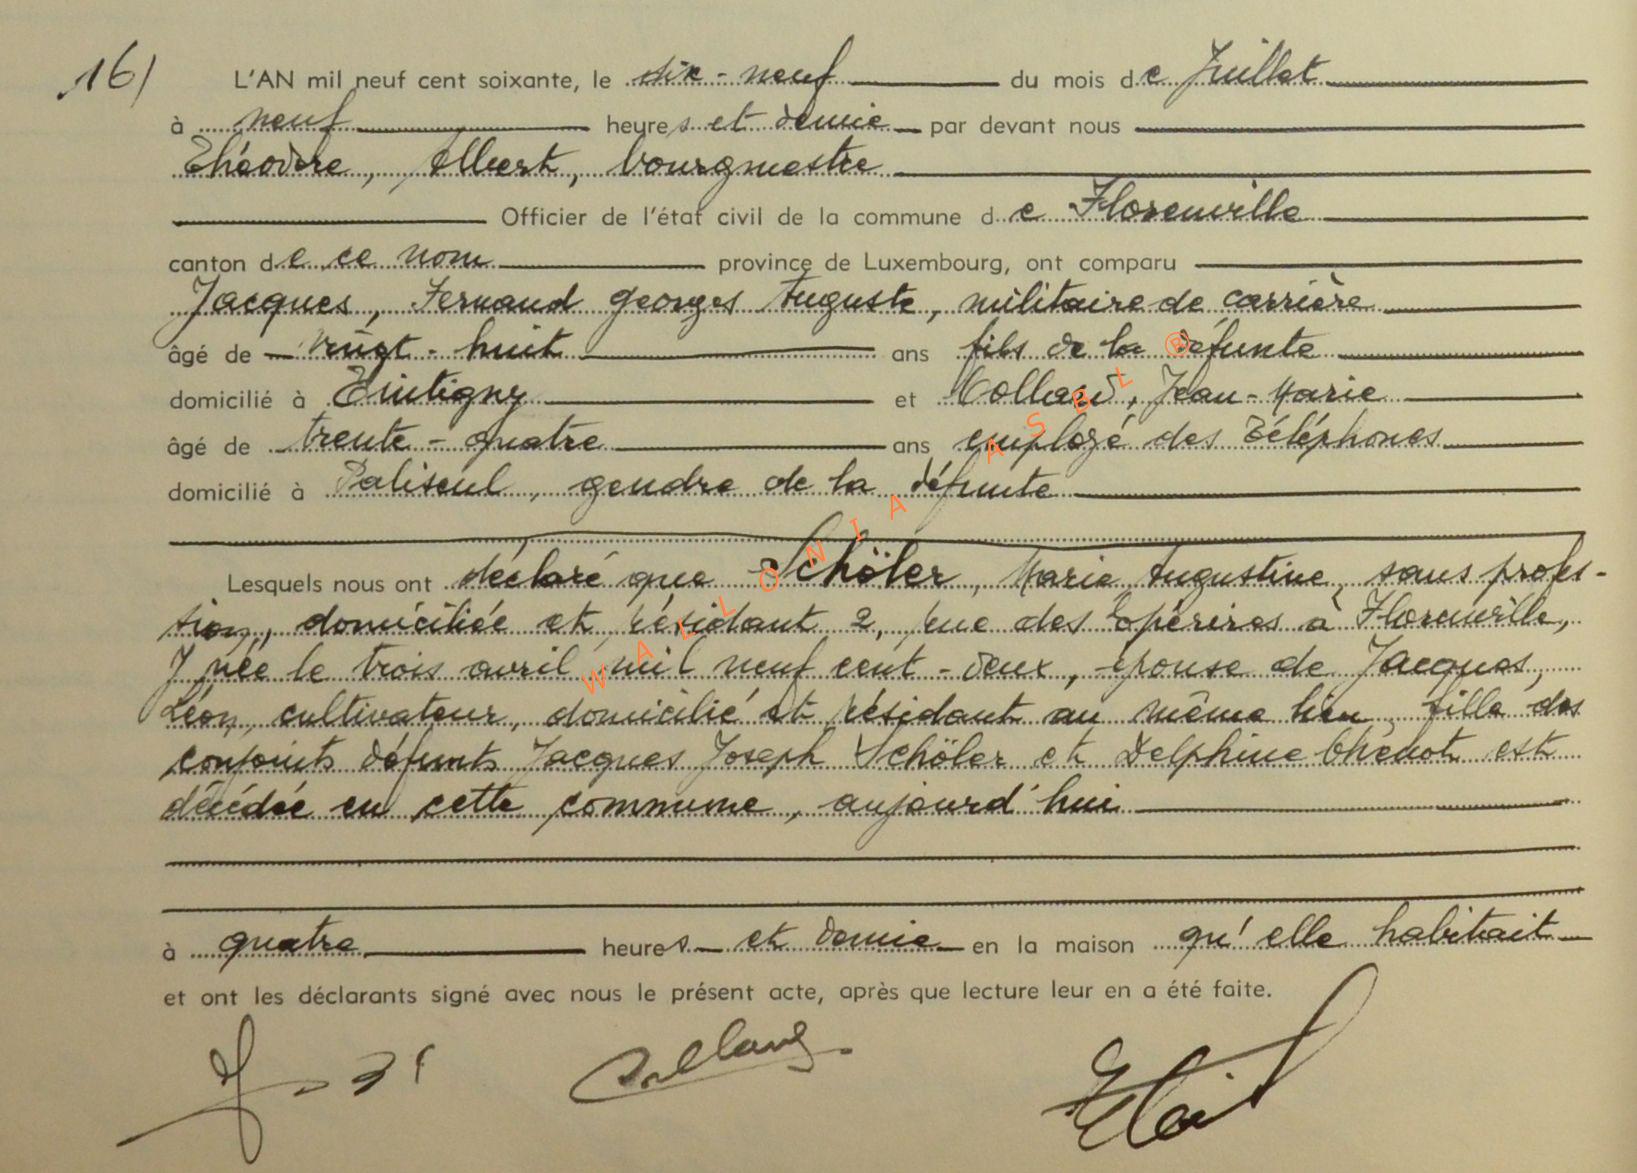 16/ L'AN mil neuf cent soixante, le dix-neuf du mois de Juillet
à neuf heures et demie par devant nous
Théodore, Albert, bourgmestre
Officier de l'état civil de la commune de Florenville
canton de ce nom province de Luxembourg, ont comparu
Jacques, Fernand Georges Auguste, militaire de carrière
âgé de vingt-huit ans fils de la défunte
domicilié à Tintigny et Collard, Jean-Marie
âgé de trente-quatre ans employé des Téléphones
domicilié à Paliseul, gendre de la défunte
Lesquels nous ont déclaré que Schöler, Marie Augustine, sans profes-
sion, domiciliée et résidant 2, rue des Epérires à Florenville,
y née le trois avril mil neuf cent-deux, épouse de Jacques,
Léon, cultivateur, domicilié et résidant au même lieu, fille des
conjoints défunts Jacques Joseph Schöler et Delphine Thénot est
décédée en cette commune, aujourd'hui
à quatre heures et demie en la maison qu'elle habitait
et ont les déclarants signé avec nous le présent acte, après que lecture leur en a été faite.
Collard
WALLONIA ASBL ®